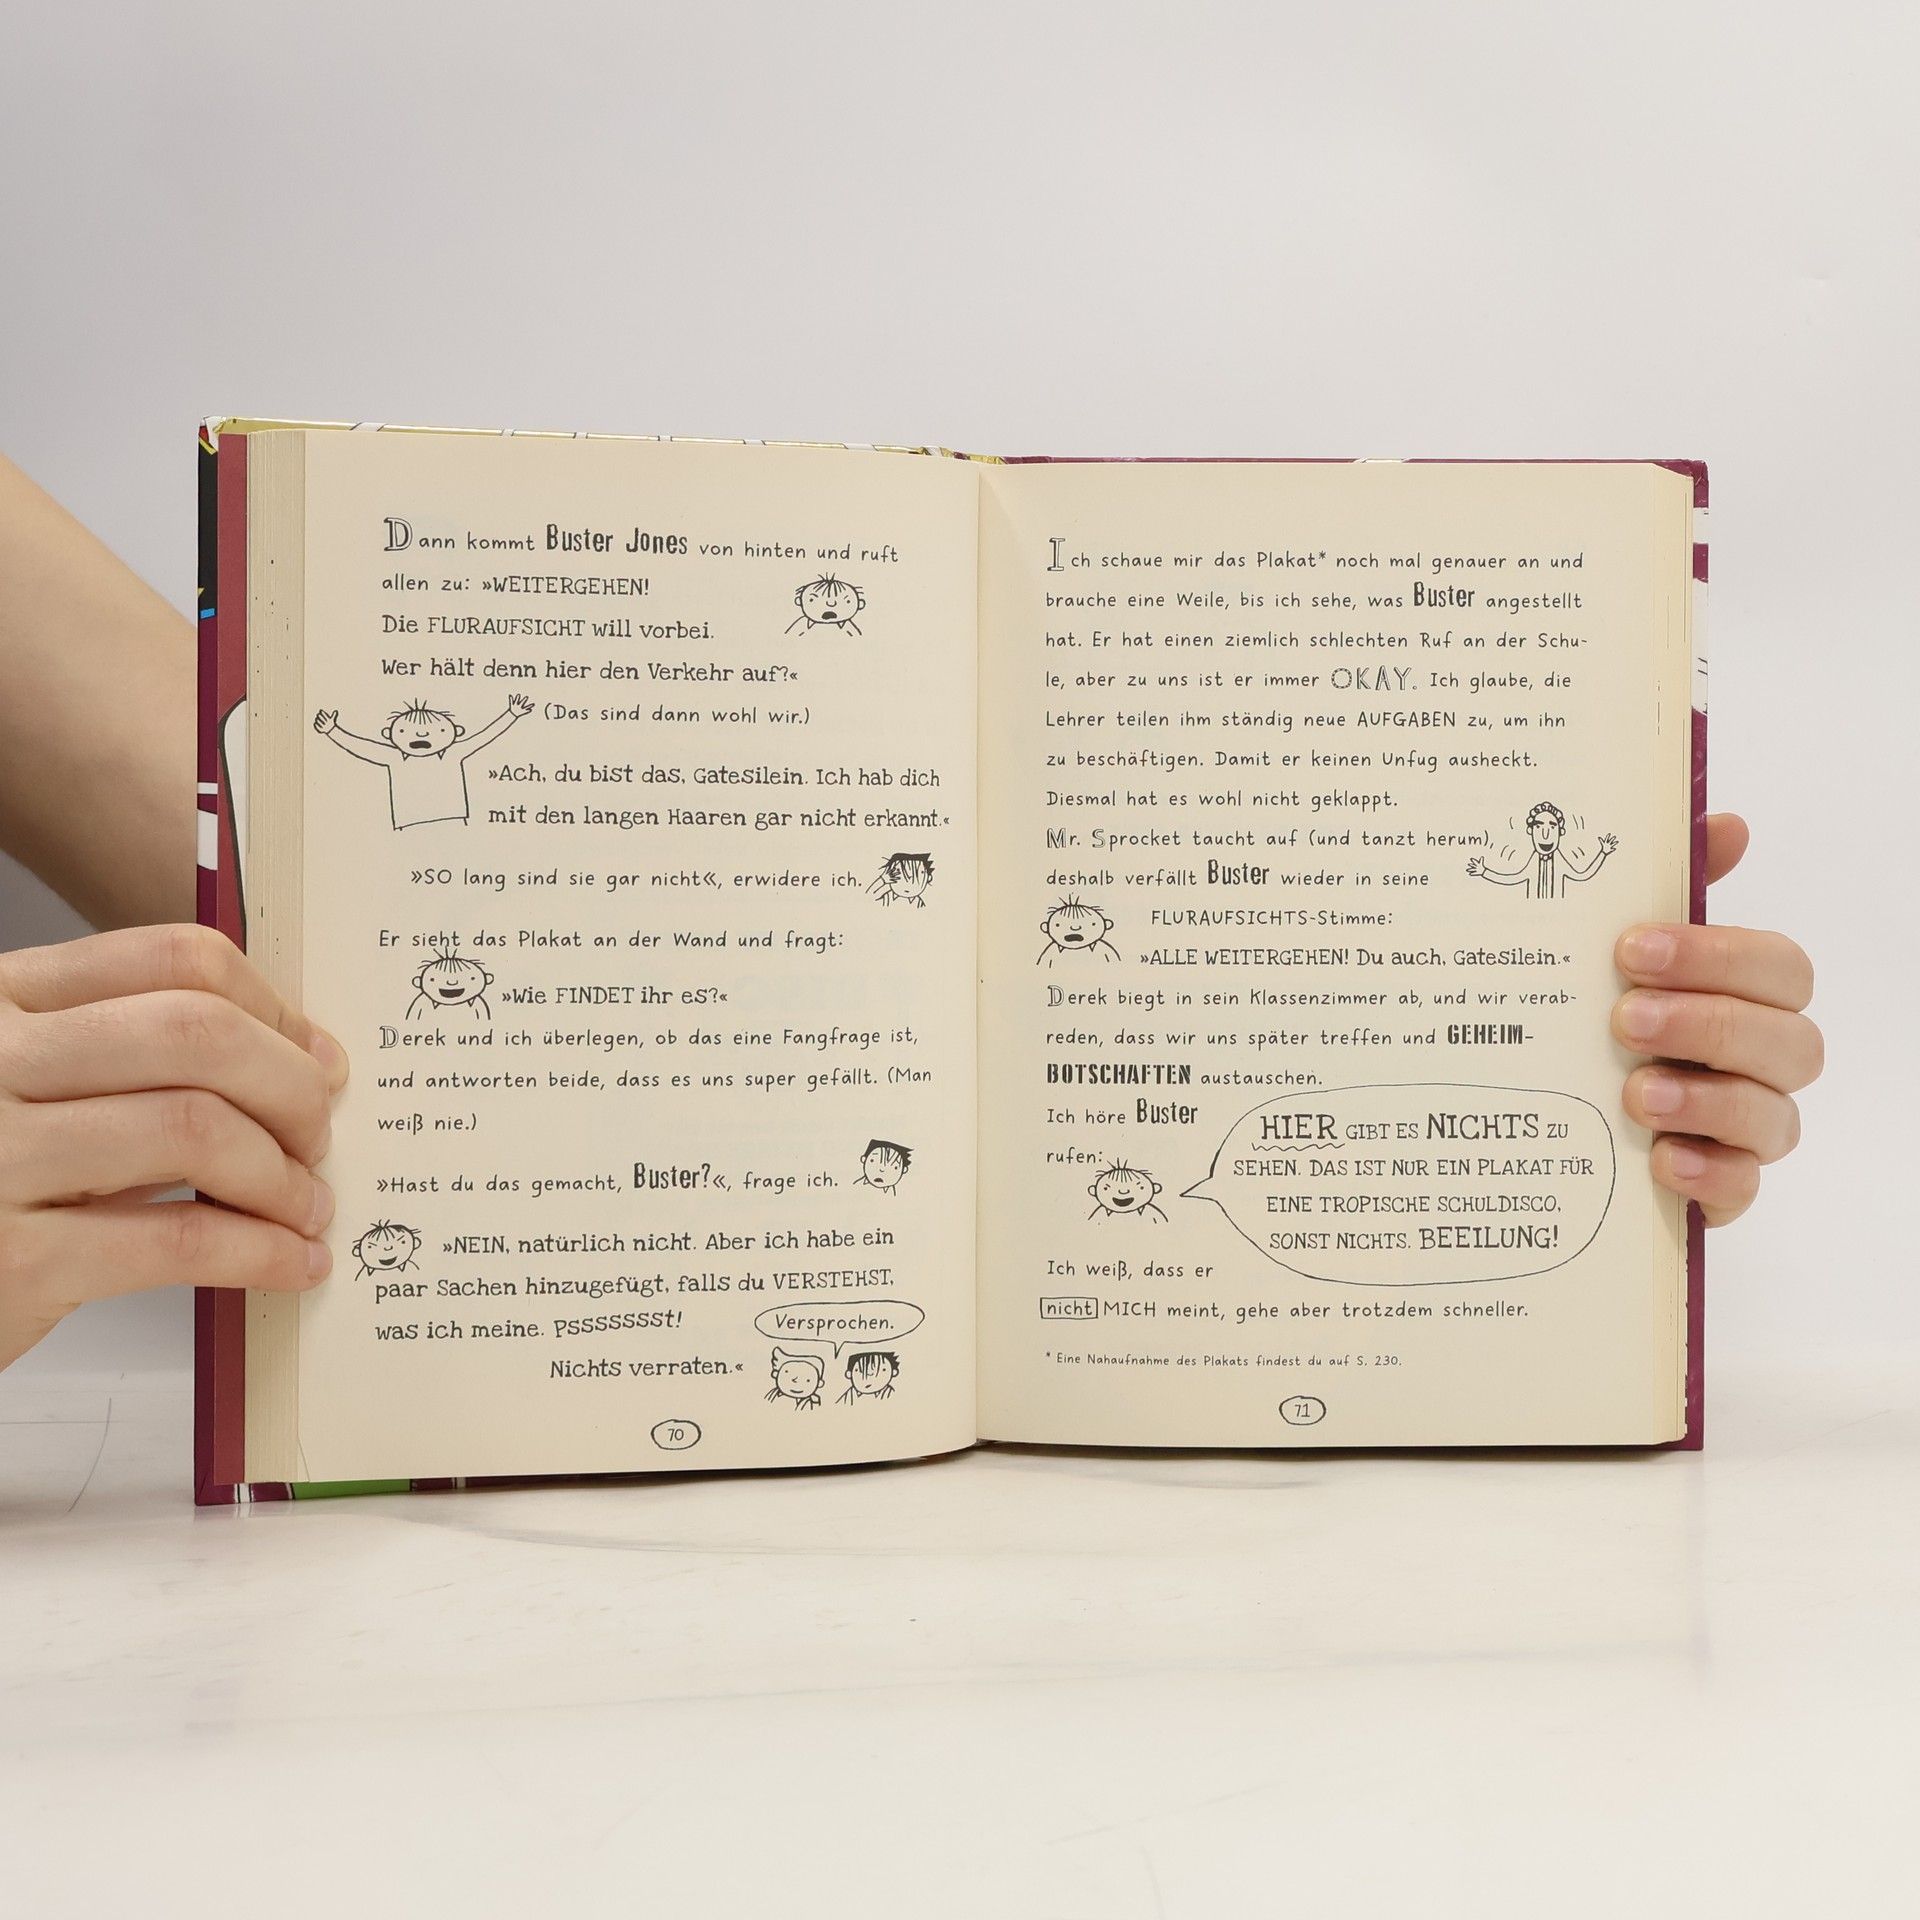 Dann kommt Buster Jones von hinten und ruft
allen zu: »WEITERGEHEN!
Die FLURAUFSICHT will vorbei.
Wer hält denn hier den Verkehr auf?«
(Das sind dann wohl wir.)
»Ach, du bist das, Gatesilein. Ich hab dich
mit den langen Haaren gar nicht erkannt.«
»SO lang sind sie gar nicht«, erwidere ich.
Er sieht das Plakat an der Wand und fragt:
»Wie FINDET ihr es?«
Derek und ich überlegen, ob das eine Fangfrage ist,
und antworten beide, dass es uns super gefällt. (Man
weiß nie.)
»Hast du das gemacht, Buster?«, frage ich.
»NEIN, natürlich nicht. Aber ich habe ein
paar Sachen hinzugefügt, falls du VERSTEHST,
was ich meine. Psssssssst!
Nichts verraten.«
Versprochen.
70
Ich schaue mir das Plakat* noch mal genauer an und
brauche eine Weile, bis ich sehe, was Buster angestellt
hat. Er hat einen ziemlich schlechten Ruf an der Schu-
le, aber zu uns ist er immer OKAY. Ich glaube, die
Lehrer teilen ihm ständig neue AUFGABEN zu, um ihn
zu beschäftigen. Damit er keinen Unfug ausheckt.
Diesmal hat es wohl nicht geklappt.
Mr. Sprocket taucht auf (und tanzt herum),
deshalb verfällt Buster wieder in seine
FLURAUFSICHTS-Stimme:
»ALLE WEITERGEHEN! Du auch, Gatesilein.«
Derek biegt in sein Klassenzimmer ab, und wir verab-
reden, dass wir uns später treffen und GEHEIM-
BOTSCHAFTEN austauschen.
Ich höre Buster
rufen:
HIER GIBT ES NICHTS ZU
SEHEN. DAS IST NUR EIN PLAKAT FÜR
EINE TROPISCHE SCHULDISCO,
SONST NICHTS. BEEILUNG!
Ich weiß, dass er
nicht MICH meint, gehe aber trotzdem schneller.
* Eine Nahaufnahme des Plakats findest du auf S. 230.
71